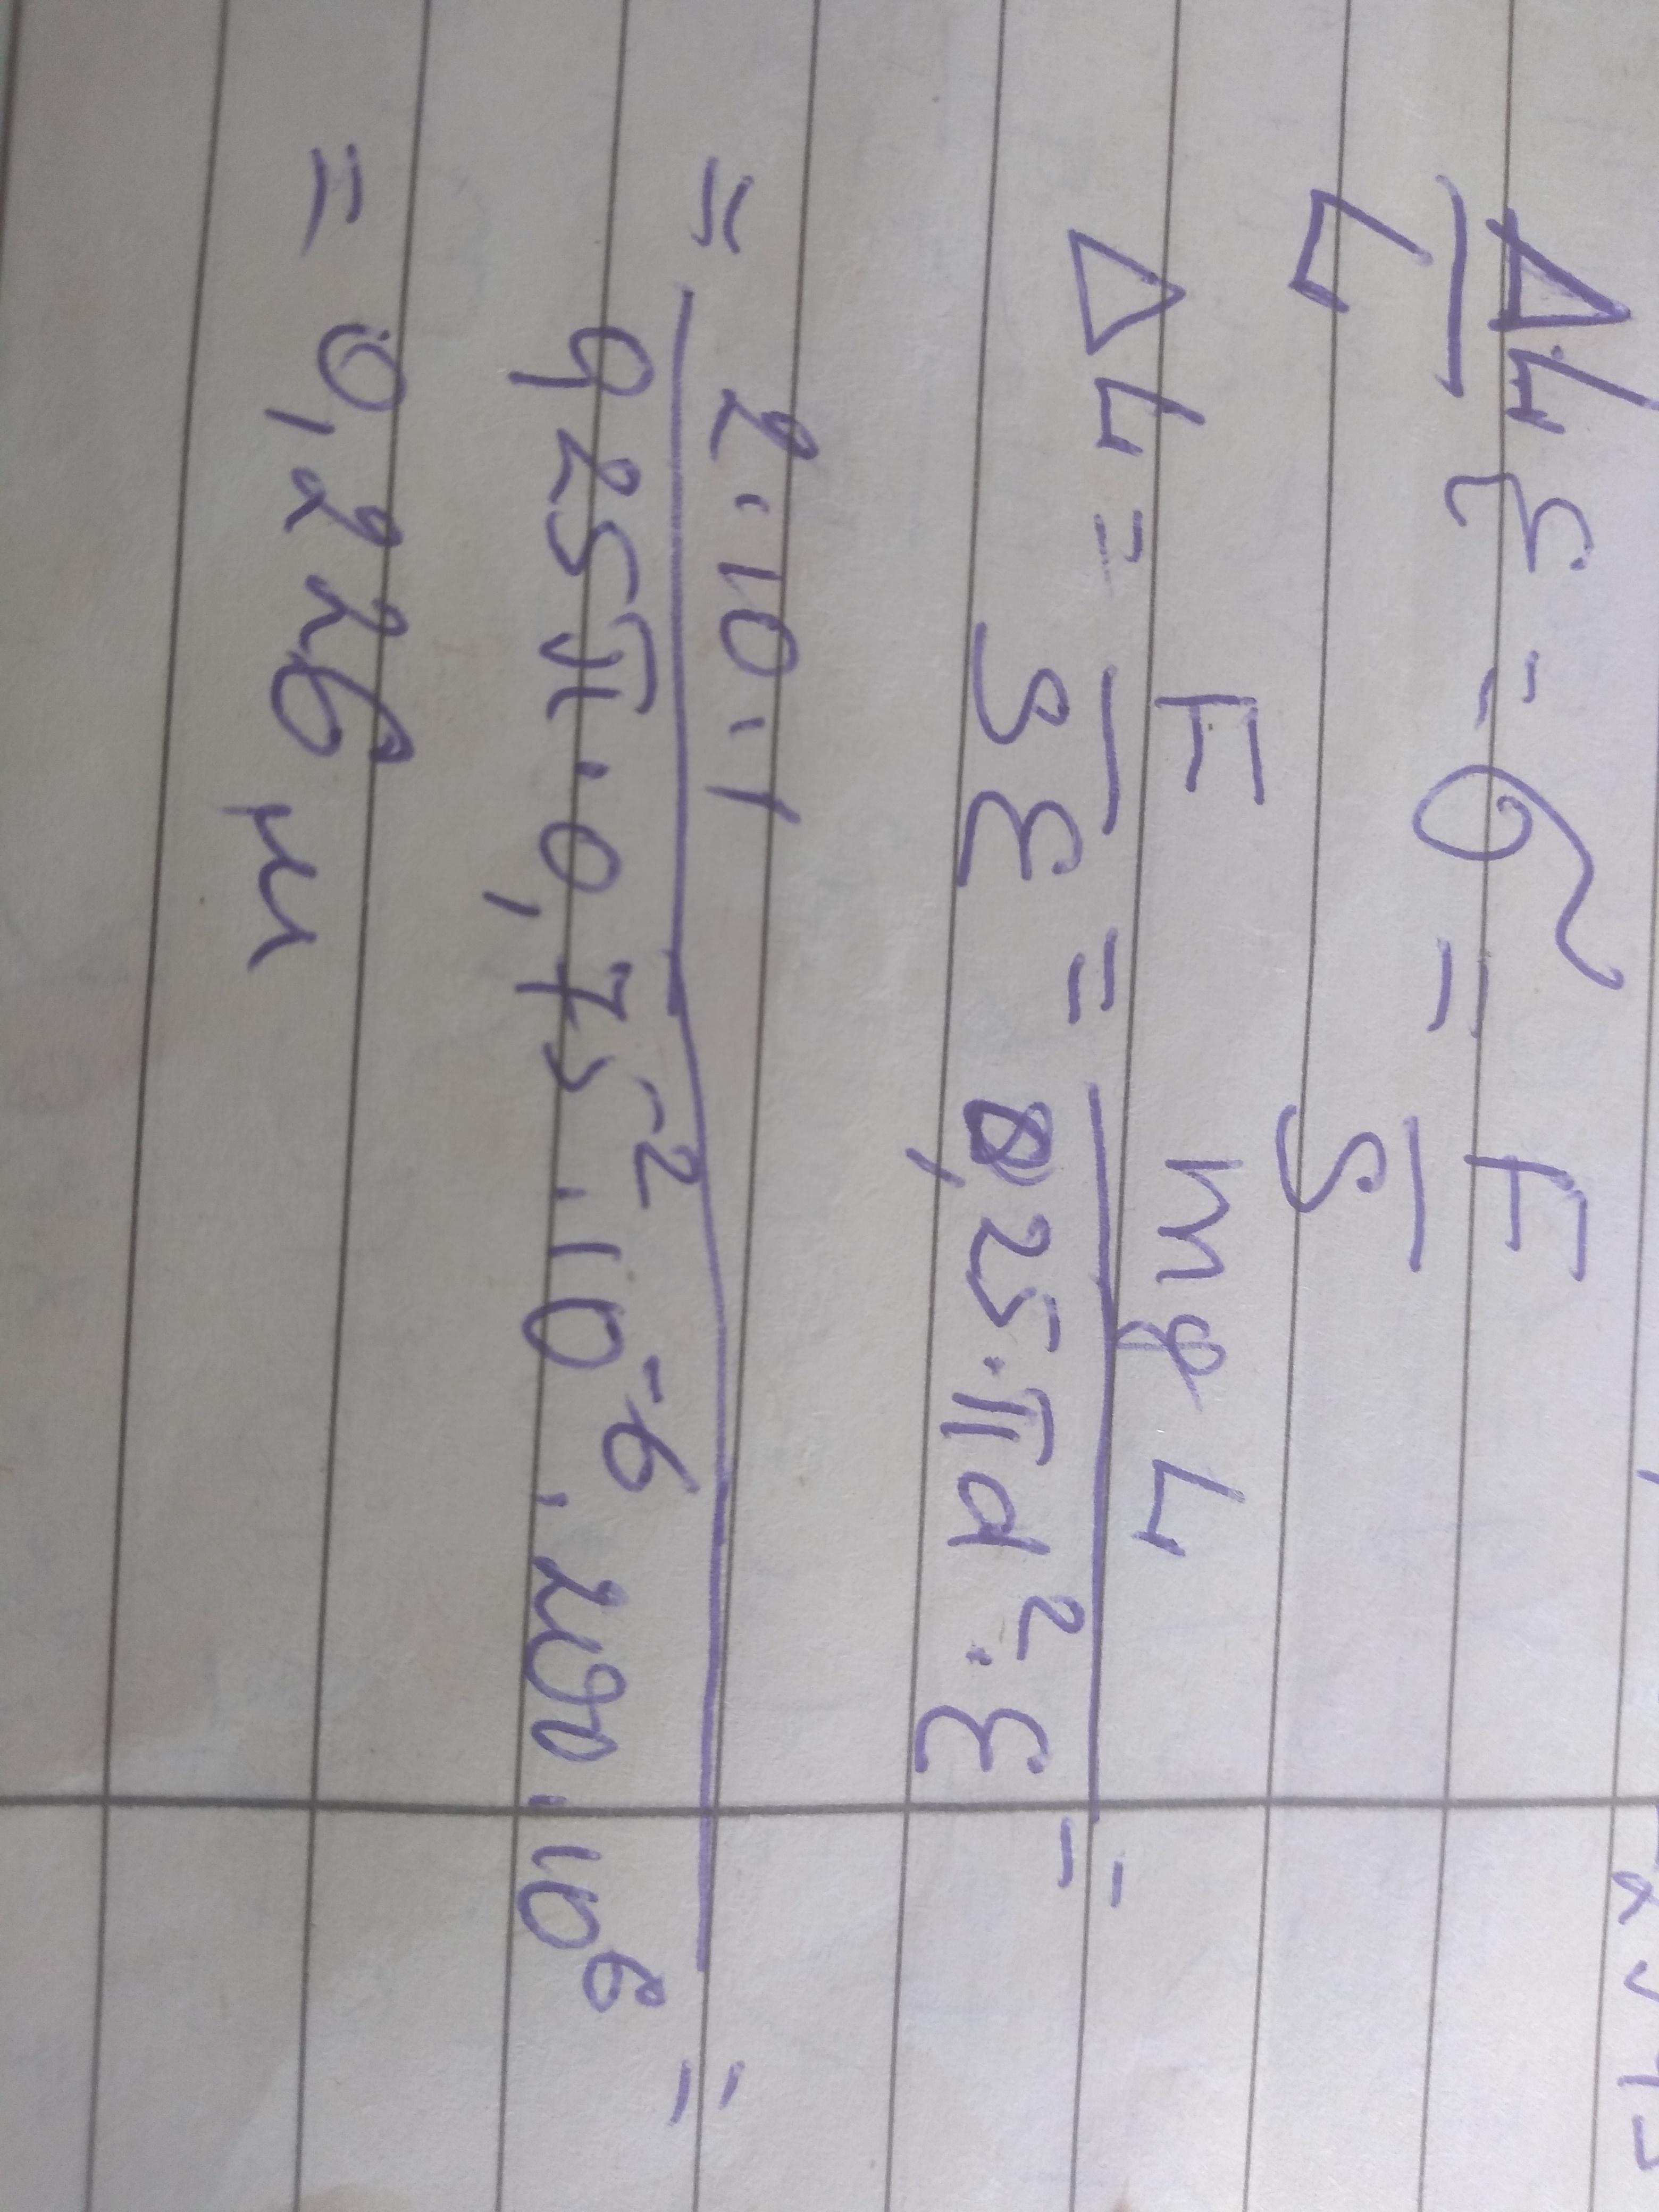 ΔL/L ε = σ = F/S
ΔL = F/Sε = mgL/0,25·πd²·ε =
= 2·10·1/0,25π·0,75²·10⁻⁶·200·10⁶ =
= 0,226 м